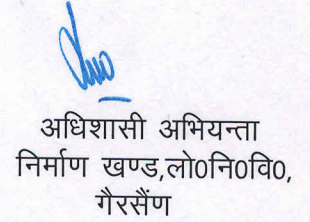 अधिशासी अभियन्ता
निर्माण खण्ड,लो0नि0वि0,
गैरसैंण